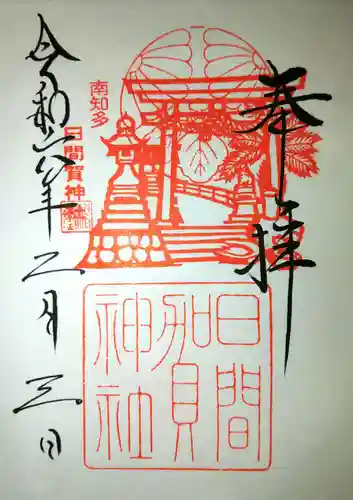 奉拝
南知多
日間賀神社
日間賀神社
令和六年二月三日